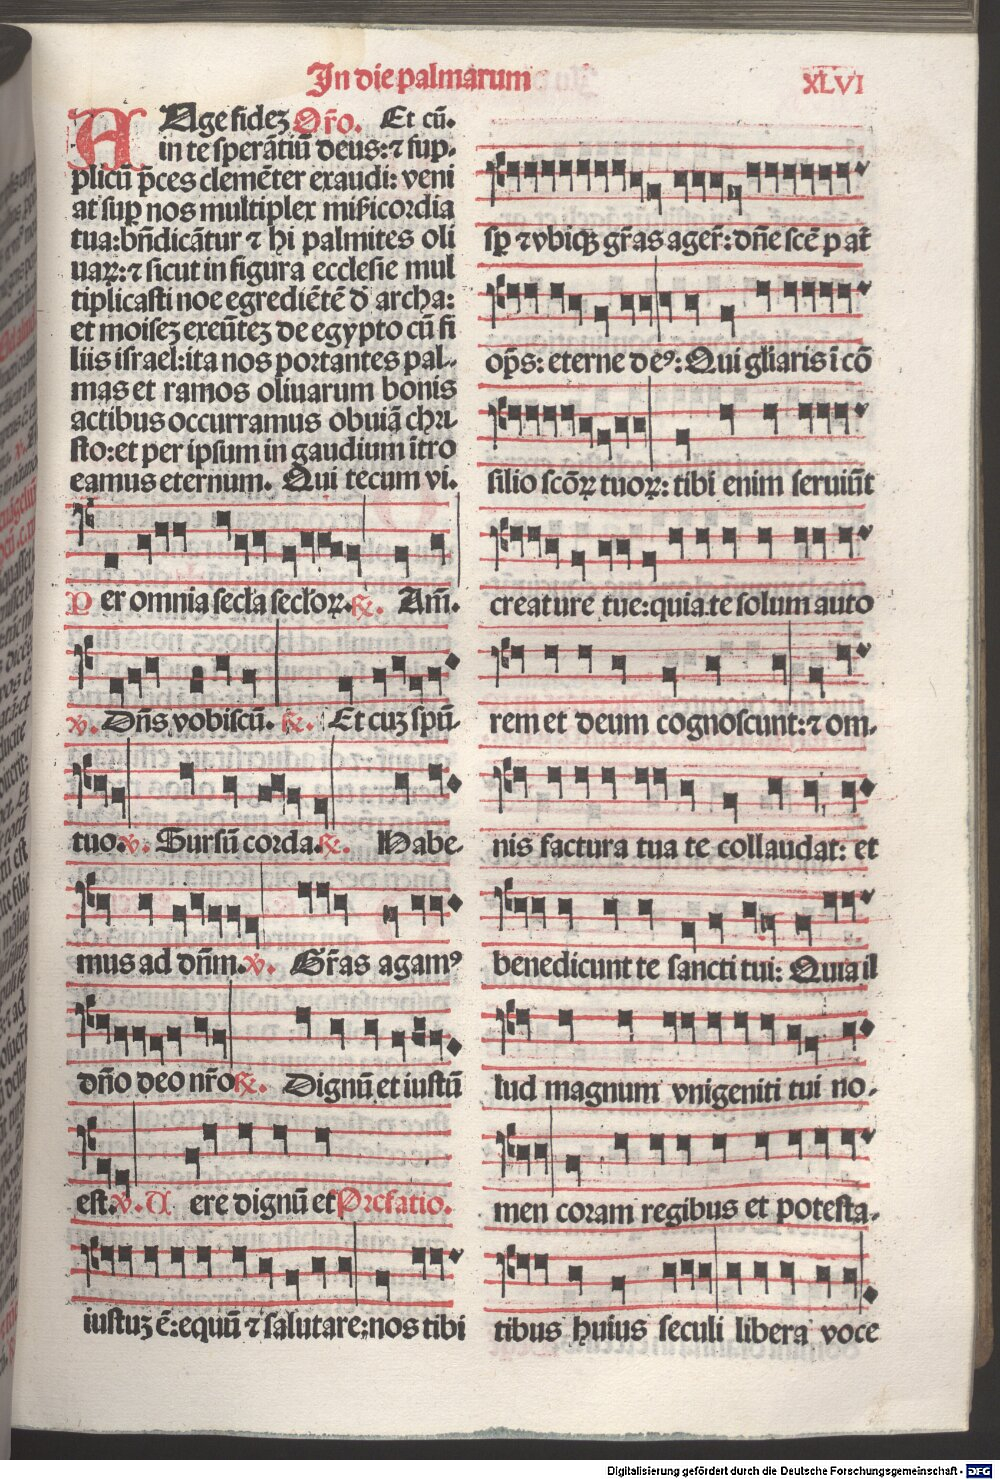 In die palmarum
XLVI
AUge fidez Oro. Et cū.
in te sperātiū deus: ⁊ sup-
plicū p̄ces clemēter exaudi: veni
at sup nos multiplex mis̄icordia
tua: bn̄dicātur ⁊ hi palmites oli
uaꝝ: ⁊ sicut in figura ecclesie mul
tiplicasti noe egrediētē d̄ archa:
et moisez exeūtez de egypto cū fi
liis israel: ita nos portantes pal-
mas et ramos oliuarum bonis
actibus occurramus obuiā chri
sto: et per ipsum in gaudium ītro
eamus eternum. Qui tecum vi.
Per omnia secla secloꝝ. ℟. Am̄.
℣. Dn̄s vobiscū. ℟. Et cuz spū
tuo. ℣. Sursū corda. ℟. Habe-
mus ad dn̄m. ℣. Gr̄as agamꝰ
dn̄o deo nr̄o ℟. Dignū et iustū
est. ℣. U ere dignū et Prefatio.
iustuz ē: equū ⁊ salutare: nos tibi
sp ⁊ vbiqꝫ gr̄as ager̄: dn̄e scē p at̄
op̄s: eterne deꝰ: Qui gl̄iaris ī cō
silio scōꝝ tuoꝝ: tibi enim seruiūt
creature tue: quia te solum auto
rem et deum cognoscunt: ⁊ om-
nis factura tua te collaudat: et
benedicunt te sancti tui: Quia il
lud magnum vnigeniti tui no-
men coram regibus et potesta-
tibus huius seculi libera voce
Digitalisierung gefördert durch die Deutsche Forschungsgemeinschaft - DFG